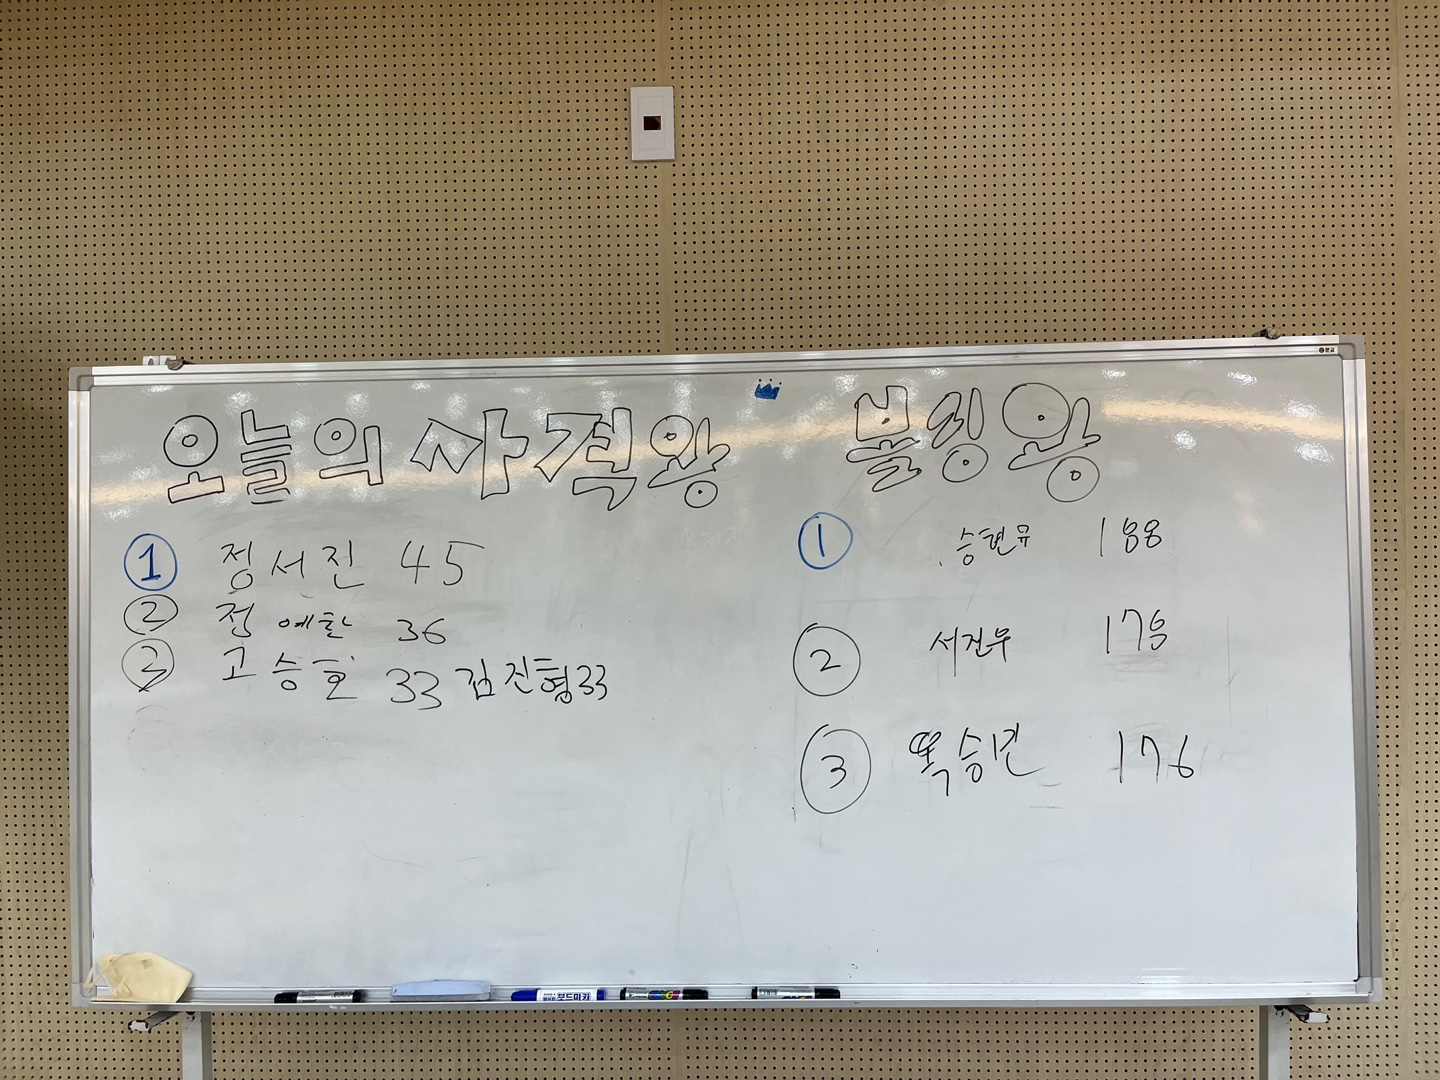 오늘의 사격왕
① 정서진 45
② 정예찬 36
③ 고승호 33 김진형 33
볼링왕
① 승현유 188
② 서진우 178
③ 승건 176
보드마카